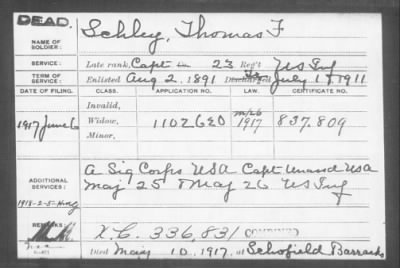 DEAD.
NAME OF SOLDIER: Schley, Thomas F
SERVICE: Late rank, Capt 23 Reg't US Inf
TERM OF SERVICE: Enlisted Aug 2, 1891 Discharged July 17 1911
DATE OF FILING. CLASS. APPLICATION NO. LAW. CERTIFICATE NO.
Invalid,
1917 June 6 Widow, 1102620 1917 837.809
Minor,
ADDITIONAL SERVICES: A Sig Corps USA Capt Unassd USA
Maj 25 & Maj 26 US Inf
REMARKS: X.C. 336,831
Died May 10, 1917, at Schofield Barracks